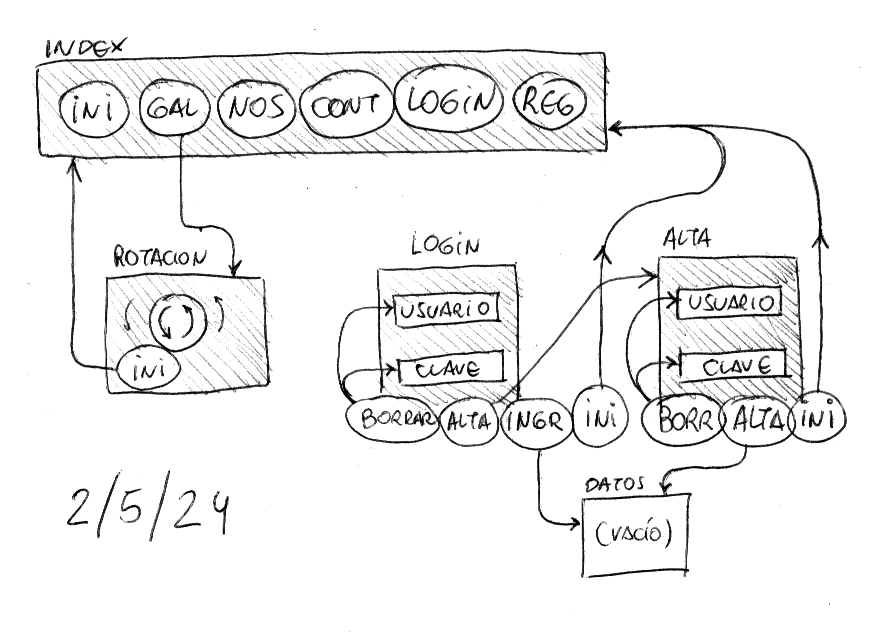 INDEX
INI GAL NOS CONT LOGIN REG
ROTACION
INI
LOGIN
USUARIO
CLAVE
BORRAR ALTA INGR INI
ALTA
USUARIO
CLAVE
BORR ALTA INI
DATOS
(VACÍO)
2/5/24